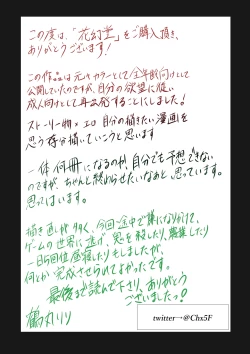 この度は、「花幻霊」をご購入頂き、
ありがとうございます!
この作品は元々カラーとして全年齢向けとして
公開していたのですが、自分の欲望に従い
成人向けとして再出発することにしました!
ストーリー物×エロ 自分の描きたい漫画を
思う存分描いていこうと思います
一体何冊になるのか自分でも予想できない
のですが、ちゃんと終わらせたいなあと、思っています。
思ってはいます。
描き直しが多く、今回途中で嫌になりかけて、
ゲームの世界に逃げ、鬼を殺したり、農業したり
一日5回位昼寝したりもしましたが、
何とか完成させられてよかったです。
最後まで読んで下さり、ありがとう
ございましたっ!
鶴丸リリ
twitter→@Chx5F